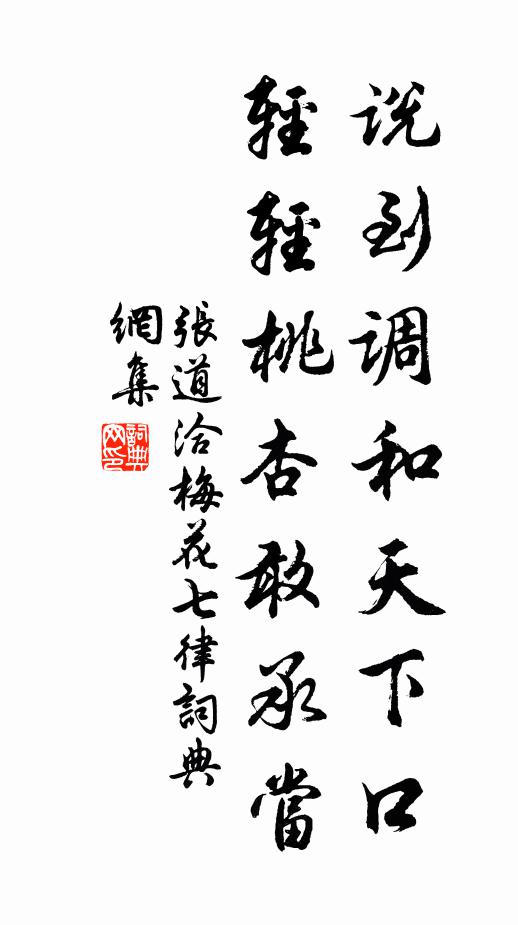 说到调和天下口
輕輕桃杏敢承當
張道洽梅花七律詞典
網集
詞典
网印